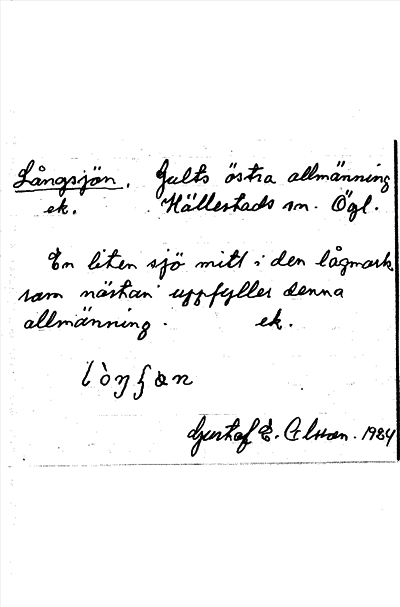 Långsjön. Gults östra allmänning
ek. Hällestads sn. Ögl.
En liten sjö mitt i den lågmark
som nästan uppfyller denna
allmänning. ek.
Gustaf E. 1984